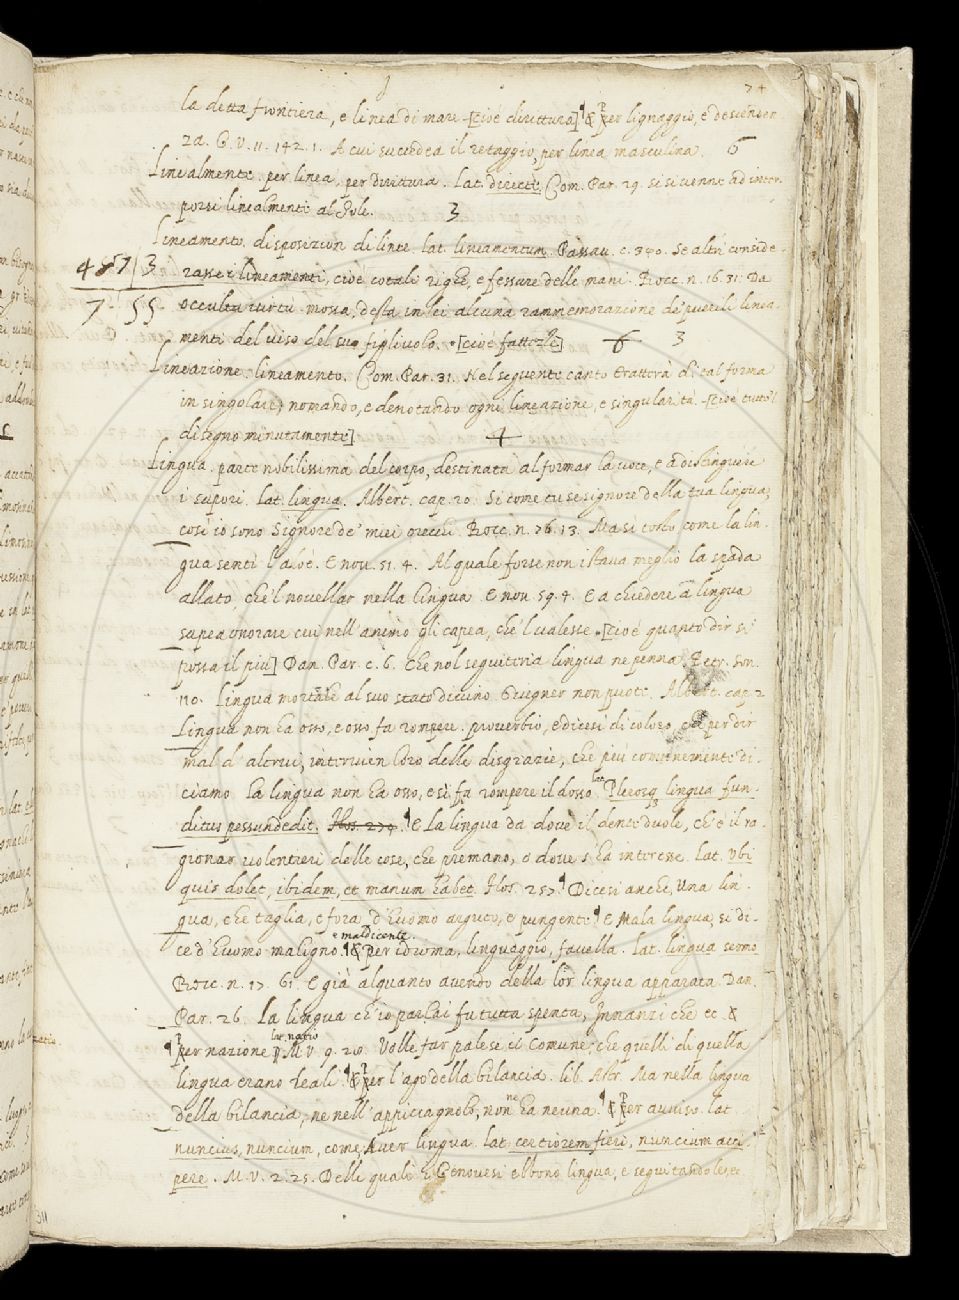 74
la detta frontiera, e linea di mare [cioè dirittura] ¶ & Per lignaggio, e descenden
za. G. V. 11. 142. 1. A cui succedea il retaggio, per linea masculina. 6
Linealmente. per linea, per dirittura. Lat. directe. Com. Par. 29. si si venne ad inter
porsi linealmente al Sole. 3
Lineamento. disposizion di linee. lat. lineamentum. Passau. c. 340. Se altri conside
rasse i lineamenti, cioè cotali righe, e fessure delle mani. Bocc. n. 16. 31. Da
3
7 55
occulta virtù mossa, desta in lei alcuna rammemorazione de' puerili linea
menti del viso del suo figlivolo. [cioè fattezze] 6 3
Lineazione. lineamento. Com. Par. 31. Nel seguente canto tratterà di tal forma
in singolare, nomando, e denotando ogni lineazione, e singularità [cioè tutto 'l
disegno minutamente] 4
Lingua. parte nobilissima del corpo, destinata al formar la voce, e a distinguere
i sapori. lat. lingua. Albert. cap. 20. Si come tu se signore della tua lingua,
così io sono Signore de' miei orecchi. Bocc. n. 76. 13. Ma sì tosto come la lin
gua sentì l'aloè. E nov. 51. 4. Al quale forse non istava meglio la spada
allato, che 'l novellar nella lingua. E nov. 59. 4. E a chiedere a lingua
sapea onorare cui nell'animo gli capea, che 'l valesse [cioè quanto dir si
possa il più] Dan. Par. c. 6. Che nol seguiteria lingua ne penna. Petr. Son.
110. Lingua mortale al suo stato divino Giugner non puote. Albert. cap. 2
Lingua non ha osso, e osso fa rompere. proverbio, e dicesi di coloro, che per dir
mal d'altrui, intervien loro delle disgrazie, che più comunemente di
ciamo La lingua non ha osso, e sì fa rompere il dosso. lat. Plerosq; lingua fun
ditus pessundedit. Flos. 274. ¶ E La lingua dà dove il dente duole, ch'è il ra
gionar volentieri delle cose, che premano, o dove s'ha interesse. Lat. Ubi
quis dolet, ibidem, et manum habet. Flos. 257. ¶ Dicesi anche, Una lin
gua, che taglia, e fora, d'huomo arguto, e pungente ¶ E Mala lingua, si di
ce d'huomo maligno e maldicente. ¶ & Per idioma, linguaggio, favella. lat. lingua sermo
Bocc. n. 17. 61. E già alquanto avendo della lor lingua apparata. Dan.
Par. 26. La lingua ch'io parlai fu tutta spenta, Innanzi che ec &
¶ Per nazione lat. natio M. V. 9. 20. Volle far palese al Comune, che quelli di quella
lingua erano leali. ¶ & Per l'ago della bilancia. lib. Astr. Ma nella lingua
della bilancia, ne nell'appiccagnolo, non ne ha neuna. ¶ & Per avviso. lat.
nuncius, nuncium, come, Aver lingua. lat. certiorem fieri, nuncium acci
pere. M. V. 2. 25. Delle quali i Genovesi ebbono lingua, e seguitandole, ec
311